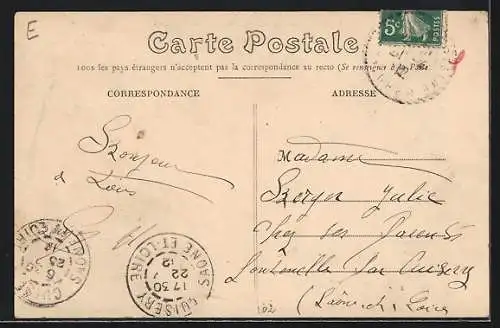 E
5c
Carte Postale
Tous les pays étrangers n'acceptent pas la correspondance au recto (Se renseigner à la Poste)
CORRESPONDANCE
ADRESSE
Bonjour
à Tous
Madame
Berger Julie
Chez ses Parents
par Cuisery
(Saône et Loire)
CUISERY
SAONE-ET-LOIRE
17 30
22
12
102